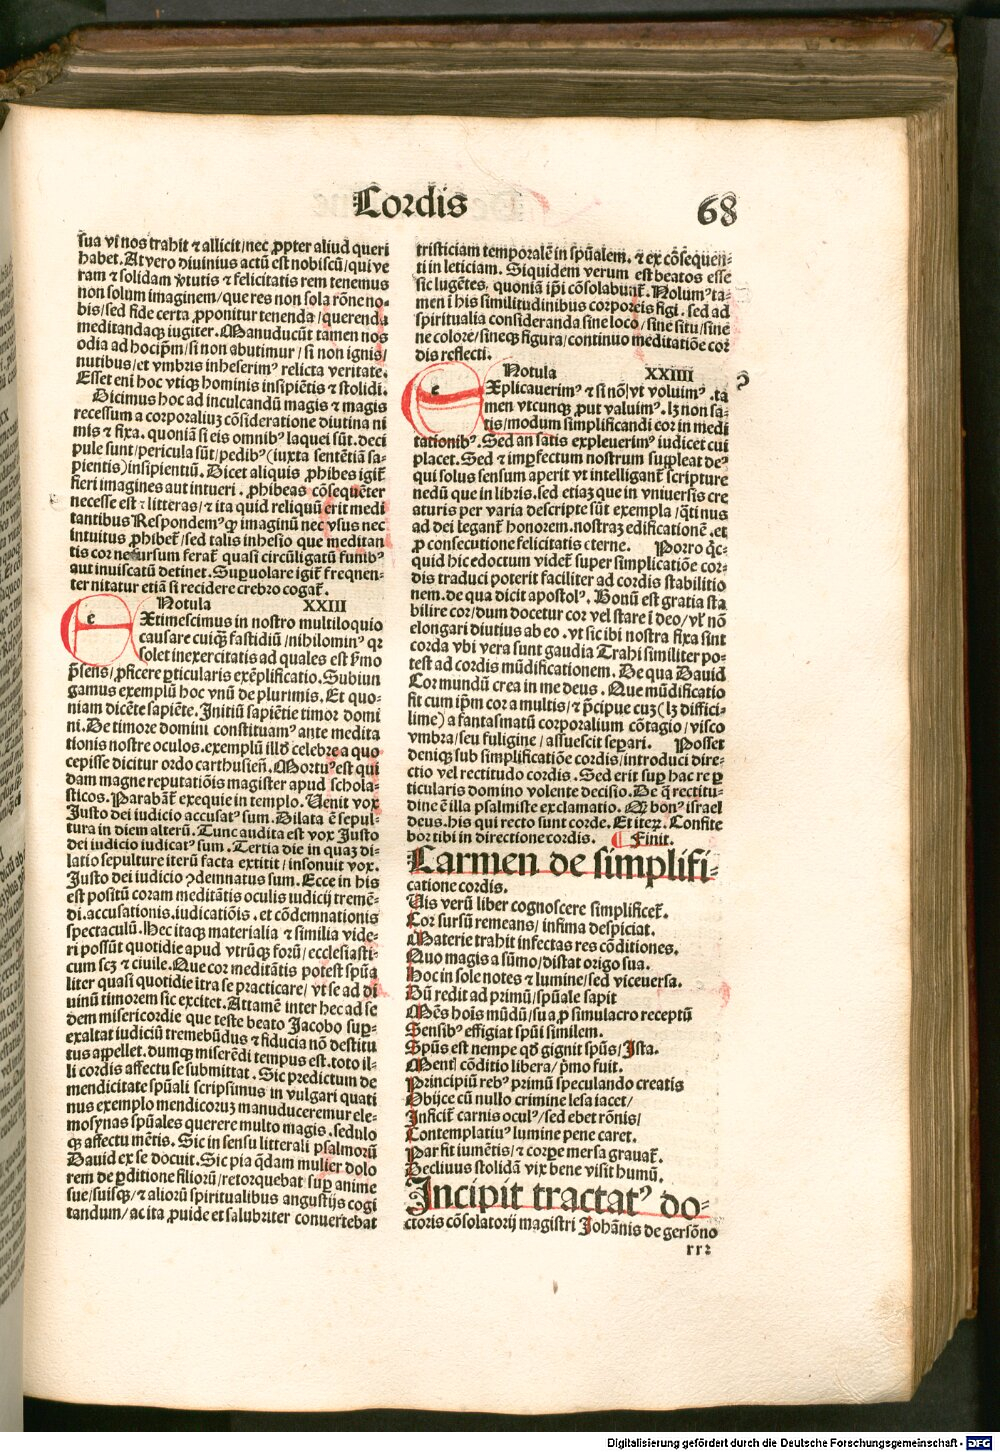 Cordis
68
sua vl̄ nos trahit ⁊ allicit/nec ꝓpter aliud queri
habet. At vero diuinius actū est nobiscū/qui ve
ram ⁊ solidam v̓tutis ⁊ felicitatis rem tenemus
non solum imaginem/que res non sola rōne no⸗
bis/sed fide certa ꝓponitur tenenda/querenda
meditandaqꝫ iugiter. Manuducūt tamen nos
odia ad hocip̄m/si non abutimur/si non ignis/
nutibus/et vmbris inheserimꝰ relicta veritate.
Esset eni hoc vtiqꝫ hominis insipiētis ⁊ stolidi.
Dicimus hoc ad inculcandū magis ⁊ magis
recessum a corporaliuꝫ cōsideratione diutina ni
mis ⁊ fixa. quoniā si eis omnibꝰ laquei sūt. deci
pule sunt/pericula sūt/pedibꝰ (iuxta sentētiā sa⸗
pientis) insipientiū. Dicet aliquis ꝓhibes igit̄
fieri imagines aut intueri. ꝓhibeas cōsequēter
necesse est ⁊ litteras/⁊ ita quid reliquū erit medi
tantibus Respondemꝰ ꝙ imaginū nec vsus nec
intuitus ꝓhibet̄/sed talis inhesio que meditan
tis cor ne sursum ferat̄ quasi circūligatū funibꝰ
aut inuiscatū detinet. Suꝑuolare igit̄ freqnen⸗
ter nitatur etiā si recidere crebro cogat̄.
Notula XXIII
e Xtimescimus in nostro multiloquio
causare cuiqꝫ fastidiū/nihilominꝰ qr
solet inexercitatis ad quales est p̄mo
p̄sens/ꝓficere ꝑticularis exēplificatio. Subiun
gamus exemplū hoc vnū de plurimis. Et quo⸗
niam dicēte sapiēte. Initiū sapiētie timor domi
ni. De timore domini constituamꝰ ante medita
tionis nostre oculos. exemplū illd̄ celebre a quo
cepisse dicitur ordo carthusieñ. Mortuꝰ est qui
dam magne reputatiōnis magister apud schola⸗
sticos. Parabāt̄ exequie in templo. Uenit vox
Justo dei iudicio accusatꝰ sum. Dilata ē sepul⸗
tura in diem alterū. Tunc audita est vox Justo
dei iudicio iudicatꝰ sum. Tertia die in quaꝫ di⸗
latio sepulture iterū facta extitit/insonuit vox.
Justo dei iudicio ꝯdemnatus sum. Ecce in his
est positū coram meditātis oculis iudicij tremē⸗
di. accusationis. iudicatiōis. et cōdemnationis
spectaculū. Hec itaqꝫ materialia ⁊ similia vide⸗
ri possūt quotidie apud vtrūqꝫ forū/ecclesiasti⸗
cum scꝫ ⁊ ciuile. Que cor meditātis potest spūa
liter quasi quotidie itra se practicare/vt se ad di
uinū timorem sic excitet. Attamē inter hec ad se
dem misericordie que teste beato Jacobo suꝑ⸗
exaltat iudiciū tremebūdus ⁊ fiducia nō destitu
tus appellet. dumqꝫ miserēdi tempus est. toto il⸗
li cordis affectu se submittat. Sic predictum de
mendicitate spūali scripsimus in vulgari quati
nus exemplo mendicoruꝫ manuduceremur ele⸗
mosynas spūales querere multo magis. sedulo
qꝫ affectu mētis. Sic in sensu litterali psalmorū
Dauid ex se docuit. Sic pia q̄dam mulier dolo
rem de ꝑditione filiorū/retorquebat suꝑ anime
sue/suisqꝫ/⁊ aliorū spiritualibus angustijs cogi
tandum/ac ita ꝓuide et salubriter conuertebat
tristiciam temporalē in spūalem. ⁊ ex cōsequen⸗
ti in leticiam. Siquidem verum est beatos esse
sic lugētes, quoniā ip̄i cōsolabunt̄. Nolumꝰ ta⸗
men ī his similitudinibus corporeis figi. sed ad
spiritualia consideranda sine loco/sine situ/sine
ne colore/sineqꝫ figura/continuo meditatiōe cor
dis reflecti.
Notula XXIIII
e Xplicauerimꝰ ⁊ si nō vt voluimꝰ. ta
men vtcunqꝫ ꝓut valuimꝰ. lꝫ non sa⸗
tis/modum simplificandi cor in medi
tationibꝰ. Sed an satis expleuerimꝰ iudicet cui
placet. Sed ⁊ imꝑfectum nostrum suppleat deꝰ
qui solus sensum aperit vt intelligant̄ scripture
nedū que in libris. sed etiaꝫ que in vniuersis cre
aturis per varia descripte sūt exempla/q̄tinus
ad dei legant̄ honorem. nostraꝫ edificationē. et
ꝓ consecutione felicitatis eterne. Porro q̄c⸗
quid hic edoctum videt̄ super simplicatiōe cor⸗
dis traduci poterit faciliter ad cordis stabilitio
nem. de qua dicit apostolꝰ. Bonū est gratia sta
bilire cor/dum docetur cor vel stare ī deo/vl̄ nō
elongari diutius ab eo. vt sic ibi nostra fixa sint
corda vbi vera sunt gaudia Trahi similiter po⸗
test ad cordis mūdificationem. De qua Dauid
Cor mundū crea in me deus. Que mūdificatio
fit cum ip̄m cor a multis/⁊ p̄cipue cuꝫ (lꝫ diffici⸗
lime) a fantasmatū corporalium cōtagio/visco
vmbra/seu fuligine/assuescit seꝑari. Posset
deniqꝫ sub simplificatiōe cordis/introduci dire⸗
ctio vel rectitudo cordis. Sed erit suꝑ hac re ꝑ
ticularis domino volente decisio. De q̄ rectitu⸗
dine ē illa psalmiste exclamatio. Q̄ꝫ bonꝰ israel
deus. his qui recto sunt corde. Et iteꝝ. Confite
bor tibi in directione cordis. Finit.
Carmen de simplifi⸗
catione cordis.
Uis verū liber cognoscere simplificet̄.
Cor sursū remeans/infima despiciat.
Materie trahit infectas res cōditiones.
Quo magis a sūmo/distat origo sua.
Hoc in sole notes ⁊ lumine/sed viceuersa.
Dū redit ad primū/spūale sapit
Mēs hois mūdū/sua ꝓ simulacro receptū
Sensibꝰ effigiat spūi similem.
Spūs est nempe qd̄ gignit spūs/Ista.
Menti cōditio libera/p̄mo fuit.
Principiū rebꝰ primū speculando creatis
Obijce cū nullo crimine lesa iacet/
Inficit̄ carnis oculꝰ/sed ebet rōnis/
Contemplatiuꝰ lumine pene caret.
Par fit iumētis/⁊ corꝑe mersa grauat̄.
Decliuus stolidā vix bene visit humū.
Incipit tractatꝰ do⸗
ctoris cōsolatorij magistri Johānis de gersōno
rr2
Digitalisierung gefördert durch die Deutsche Forschungsgemeinschaft - DFG